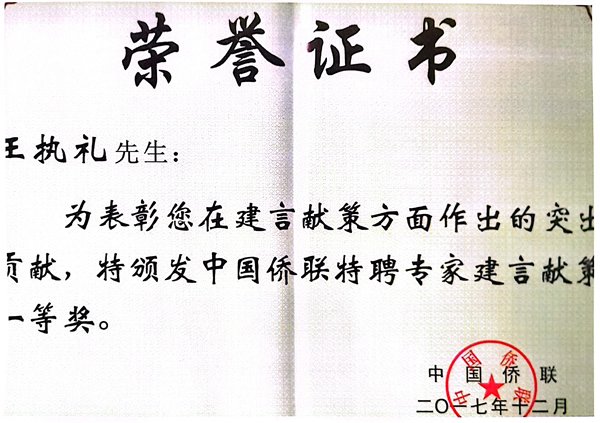 荣誉证书
王执礼先生：
为表彰您在建言献策方面作出的突出
贡献，特颁发中国侨联特聘专家建言献策
一等奖。
中国侨联
中国侨联
二〇一七年十二月